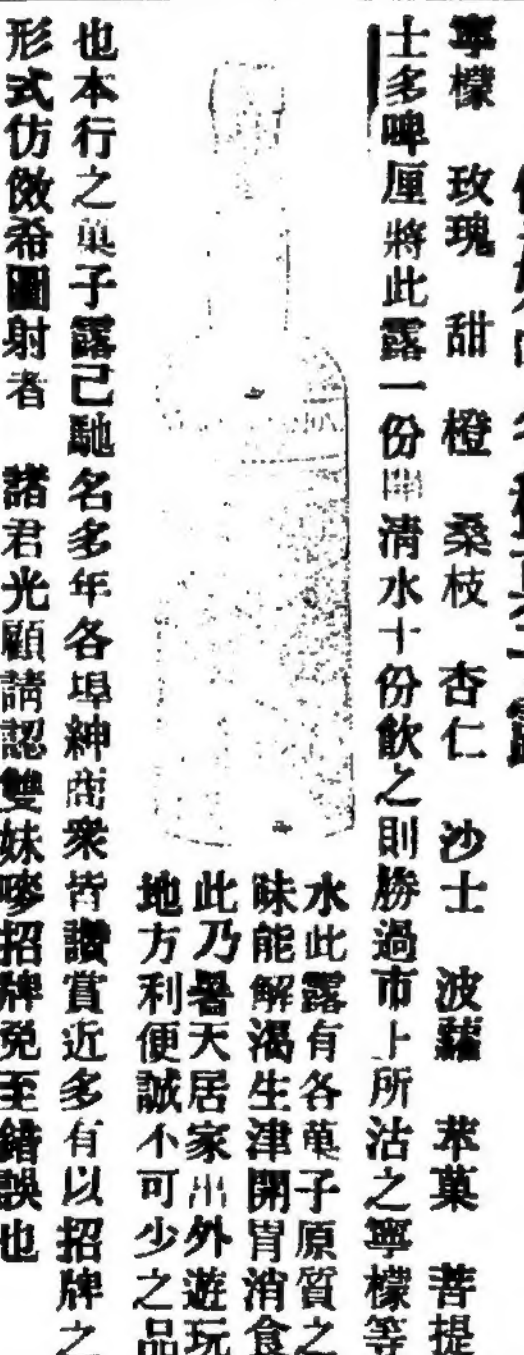 寧檬 玫瑰 甜橙 桑枝 杏仁 沙士 波蘿 苹菓 菩提
士多啤厘將此露一份開清水十份飲之則勝過市上所沽之寧檬等
水此露有各菓子原質之
味能解渴生津開胃消食
此乃暑天居家出外遊玩
地方利便誠不可少之品
也本行之菓子露己馳名多年各埠紳商衆皆讚賞近多有以招牌之
形式仿傚希圖射者 諸君光顧請認雙妹嘜招牌免至錯誤也